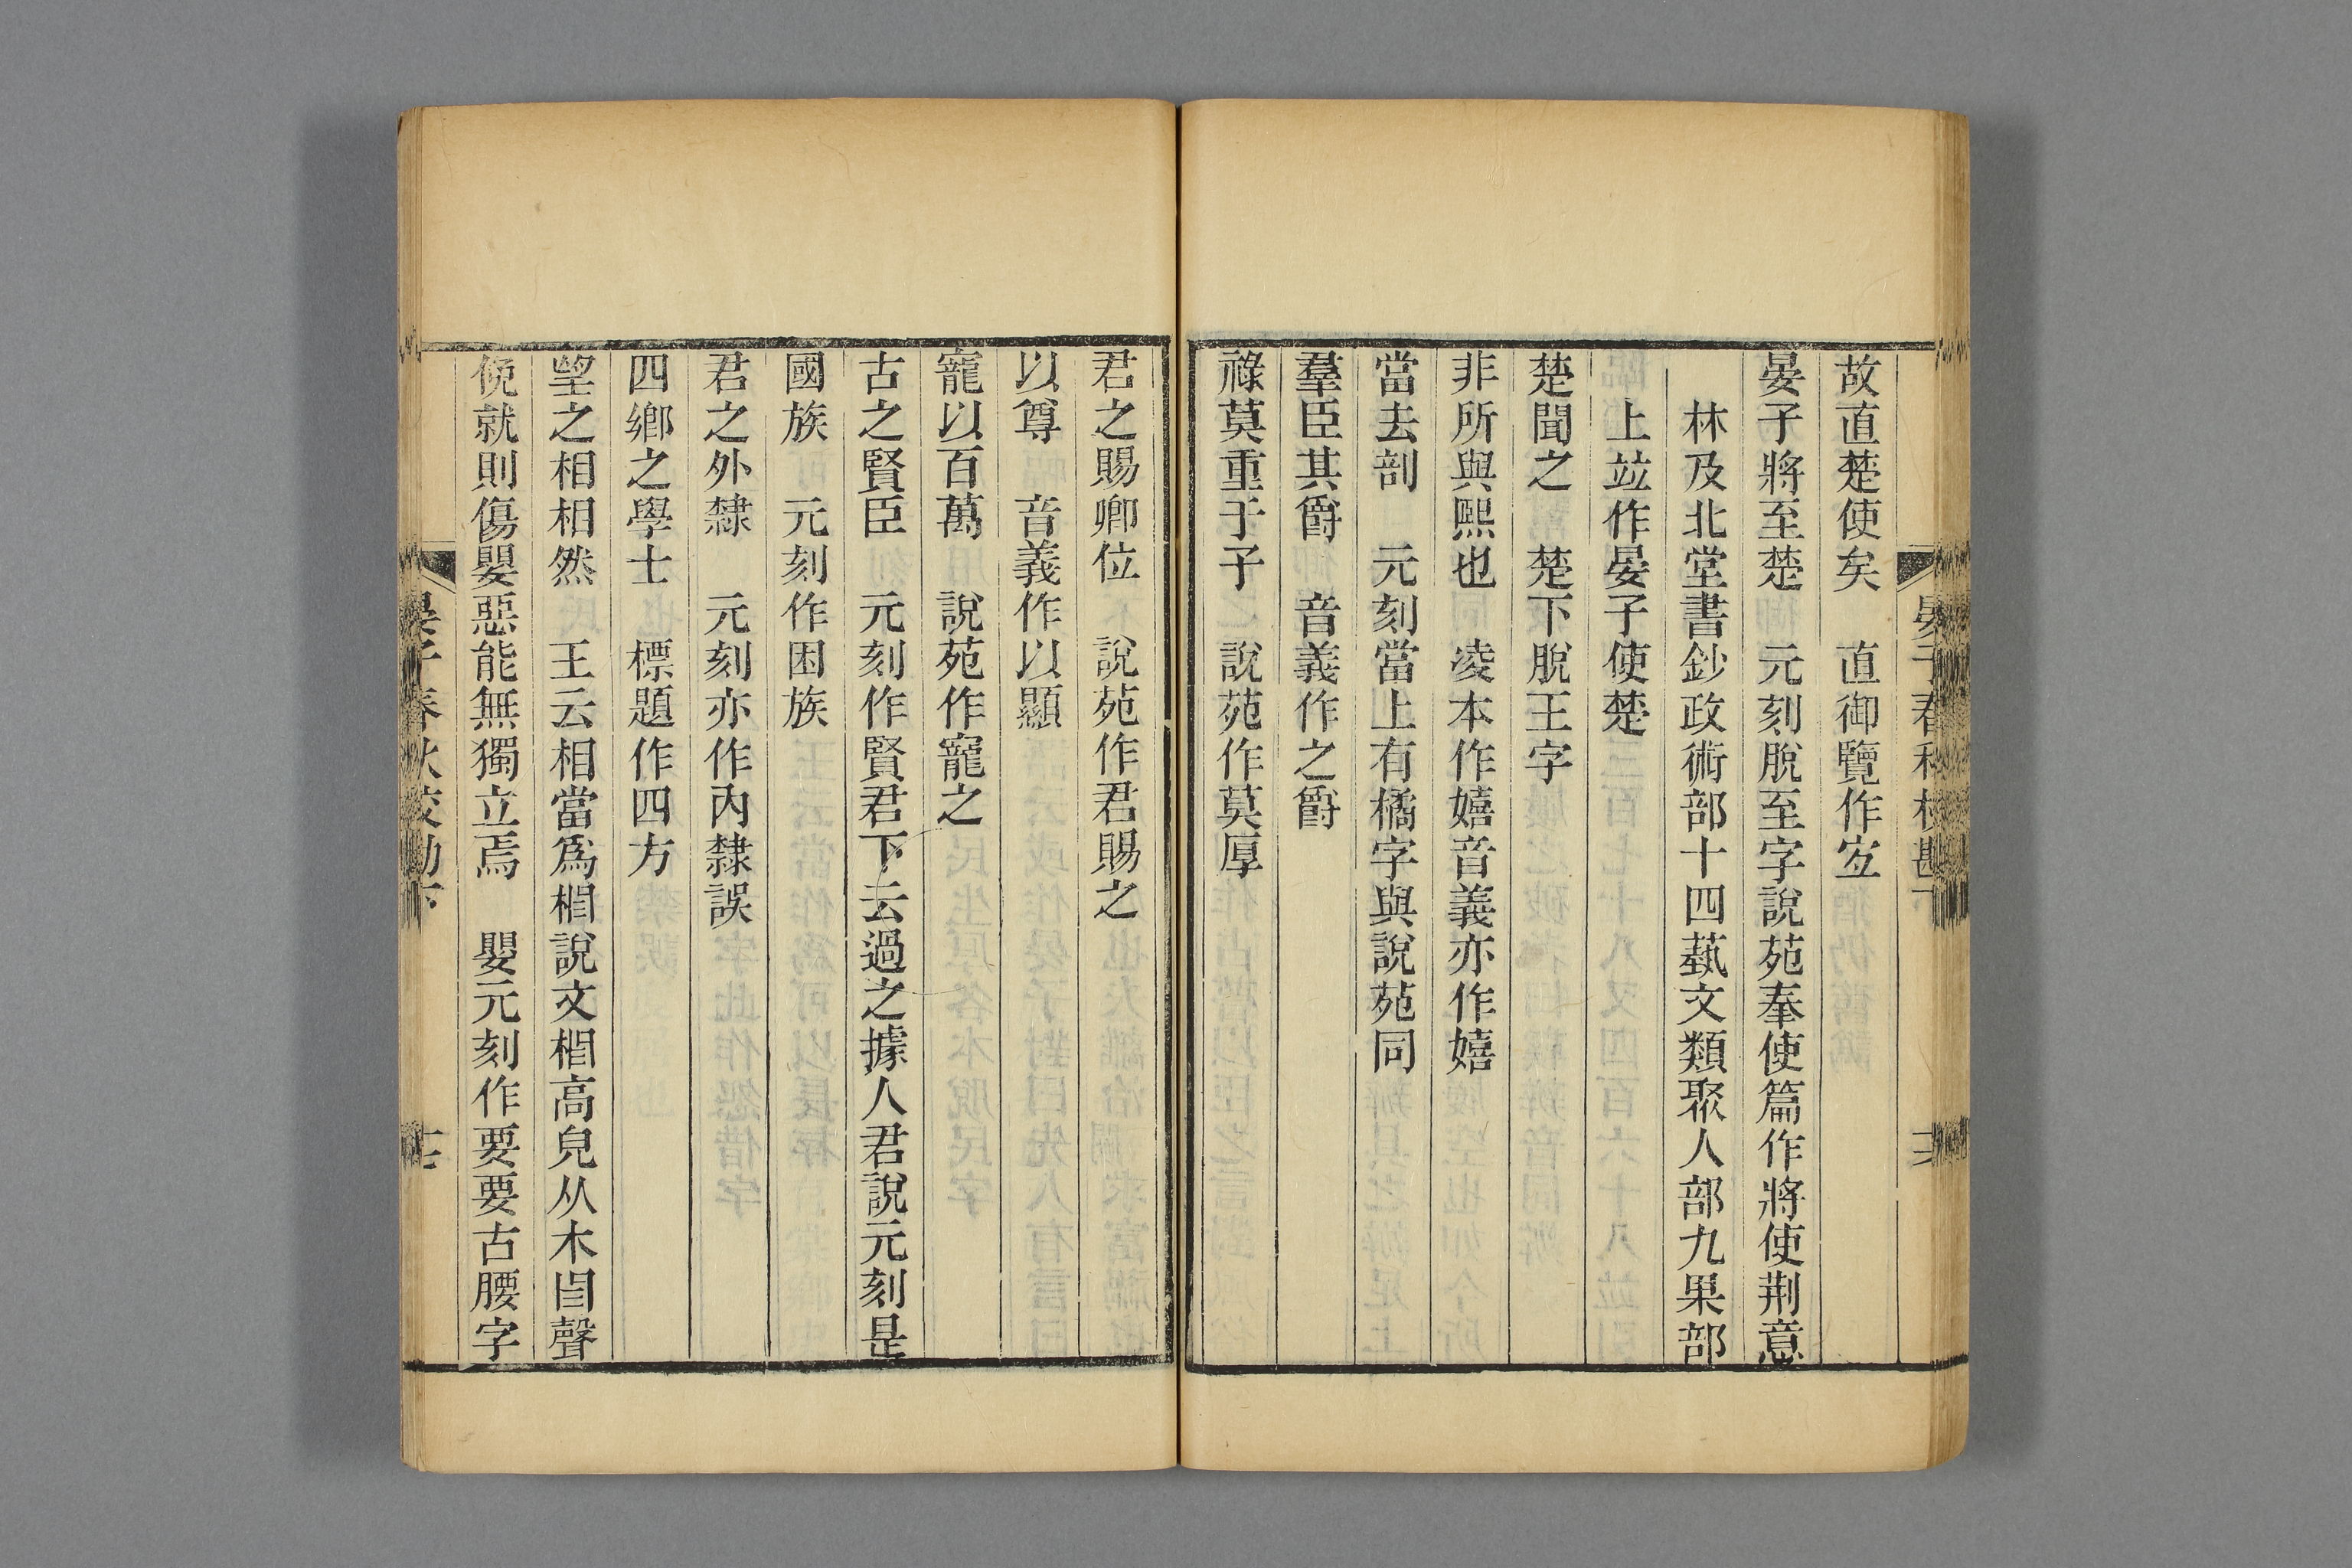 故直楚使矣　直御覽作宐
晏子將至楚　元刻脫至字說苑奉使篇作將使荆意
林及北堂書鈔政術部十四藝文類聚人部九果部
上竝作晏子使楚
楚聞之　楚下脫王字
非所與熙也　凌本作嬉音義亦作嬉
當去剖　元刻當上有橘字與說苑同
羣臣其爵　音義作之爵
祿莫重于子　說苑作莫厚
君之賜卿位　說苑作君賜之
以尊　音義作以顯
寵以百萬　說苑作寵之
古之賢臣　元刻作賢君下云過之據人君說元刻是
國族　元刻作困族
君之外隸　元刻亦作內隸誤
四鄉之學士　標題作四方
望之相相然　王云相當爲榾說文榾高皃从木㫚聲
俛就則傷嬰惡能無獨立焉　嬰元刻作要要古腰字
晏子春秋校勘下